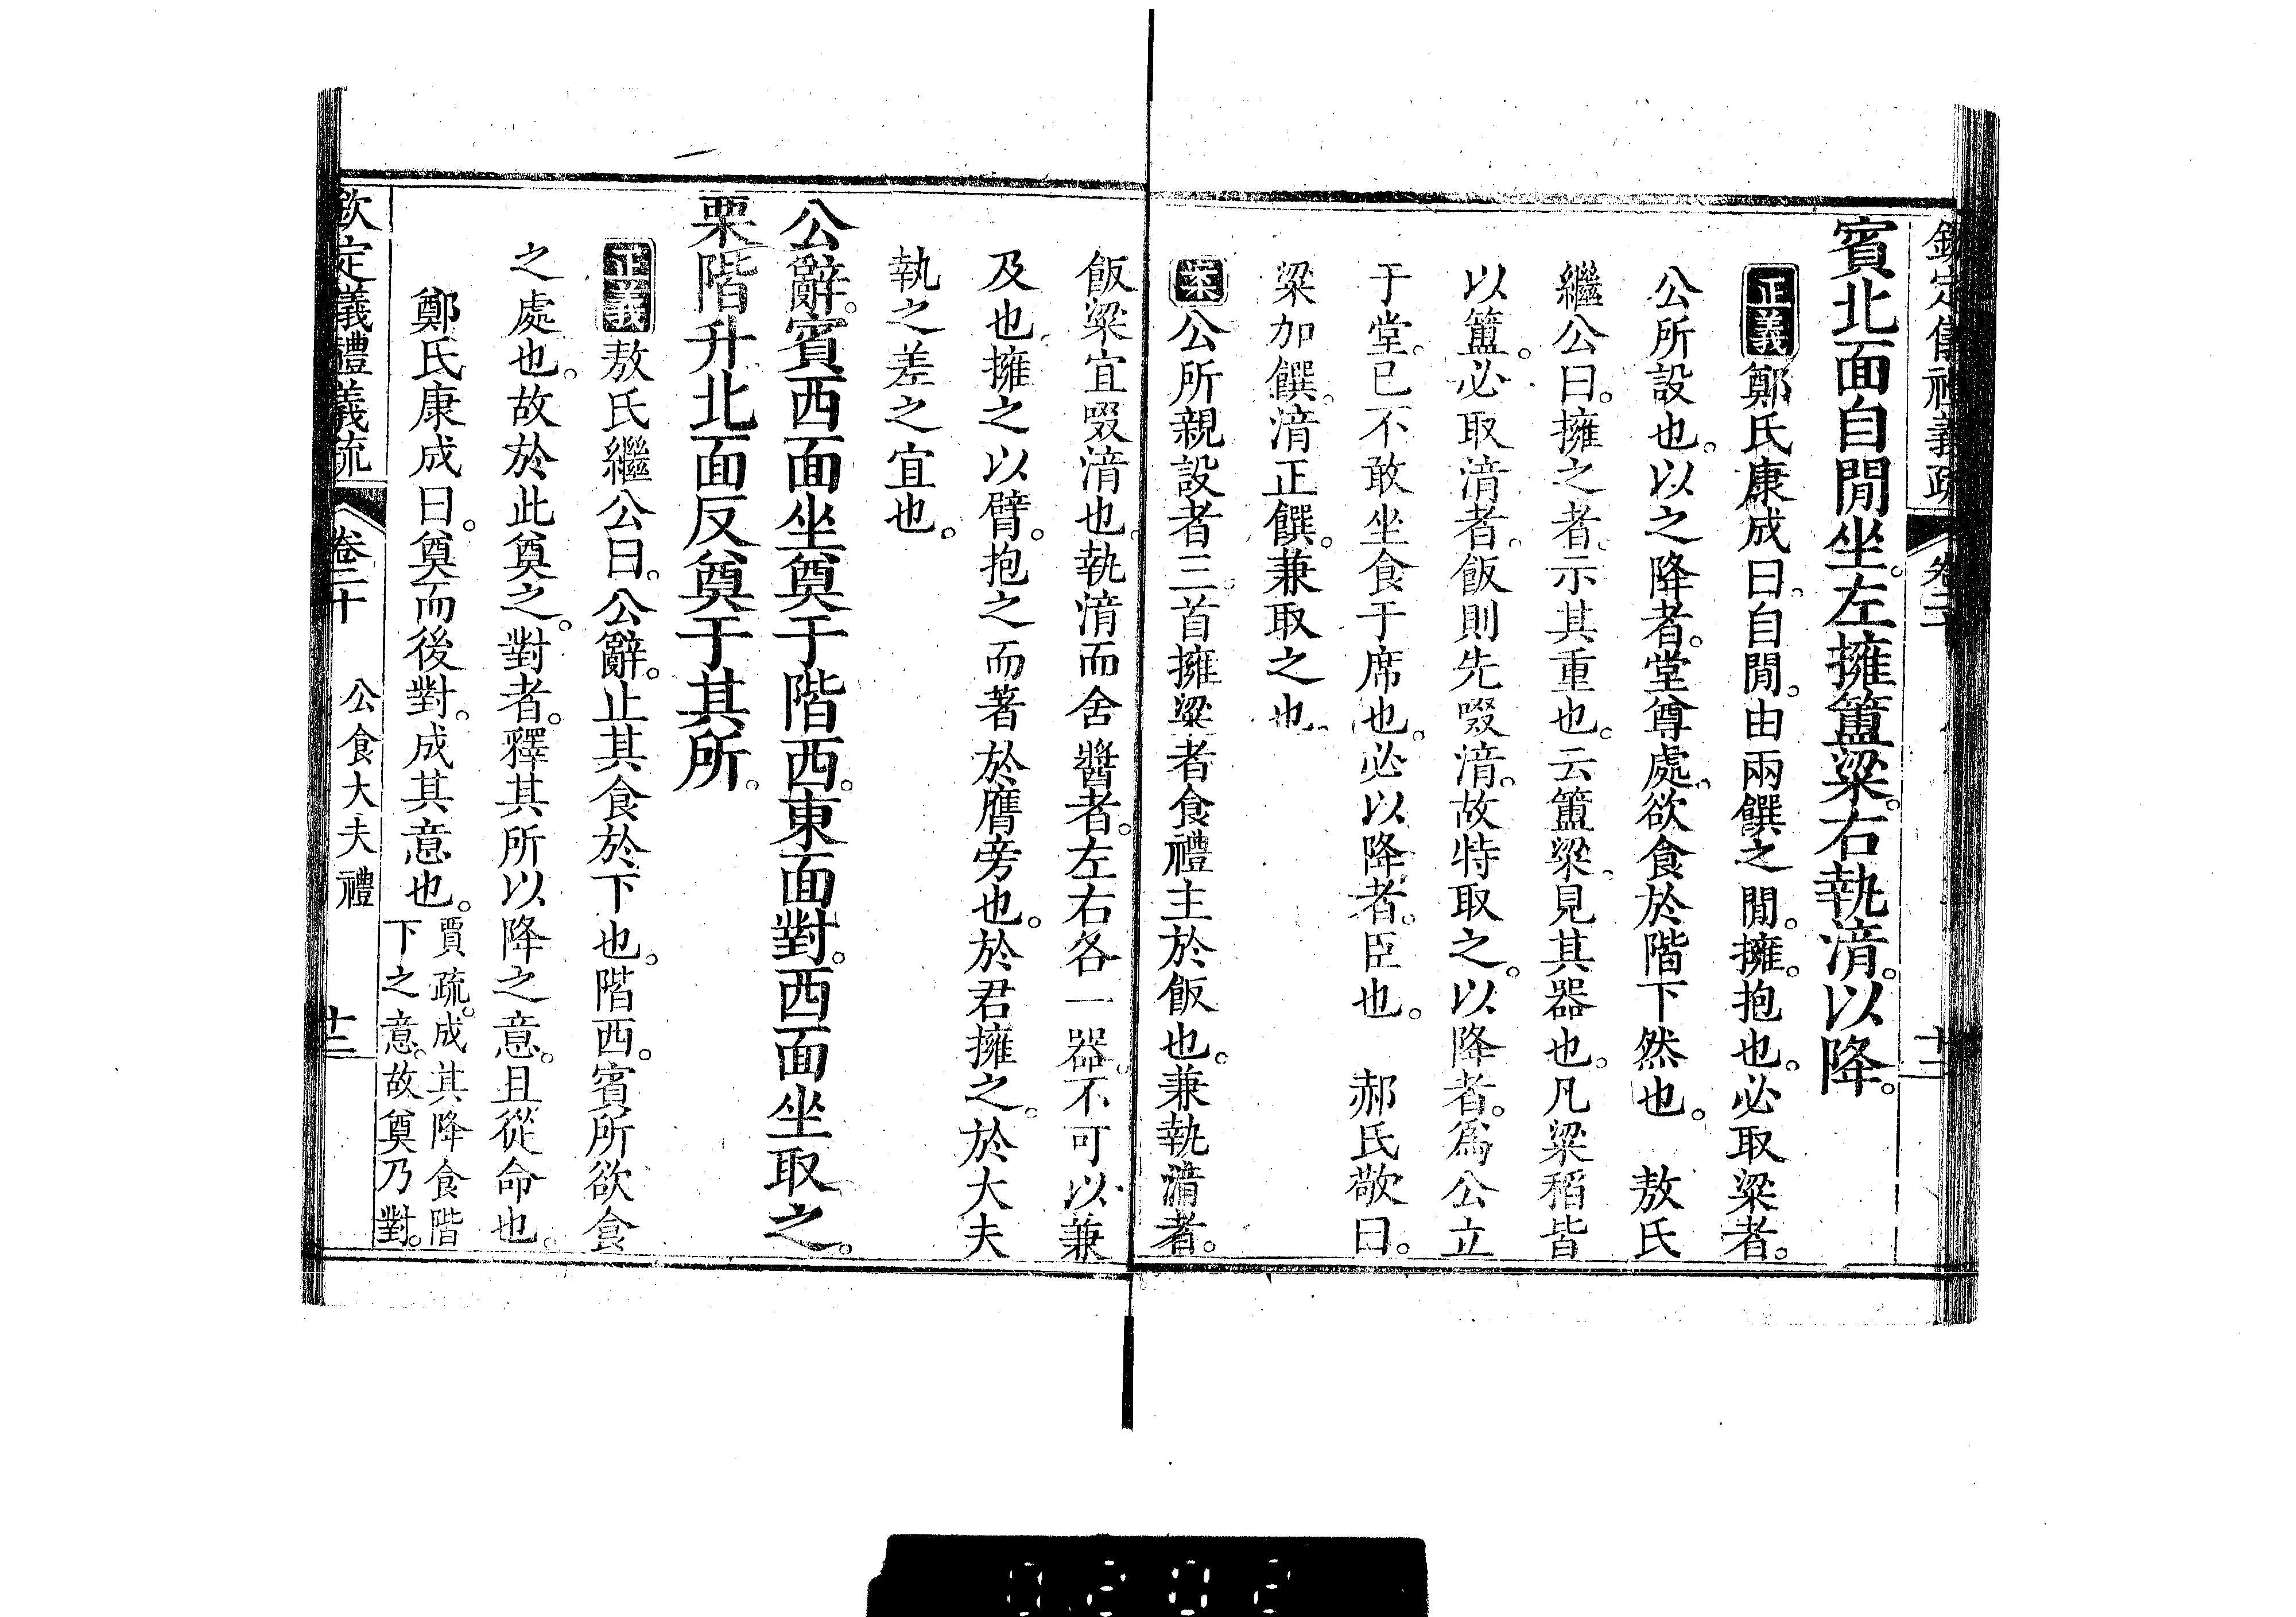 欽定儀禮義疏 卷二十 十二
賓北面自閒坐。左擁簠粱。右執湆。以降。
正義 鄭氏康成曰。自閒。由兩饌之閒。擁。抱也。必取粱者。
公所設也。以之降者。堂尊處。欲食於階下然也。 敖氏
繼公曰。擁之者。示其重也。云簠粱。見其器也。凡粱稻皆
以簠。必取湆者。飯則先啜湆。故特取之。以降者。爲公立
于堂。已不敢坐食于席也。必以降者。臣也。 郝氏敬曰。
粱加饌。湆正饌。兼取之也。
案 公所親設者三。首擁粱者食禮主於飯也。兼執湆者。
飯粱宜啜湆也。執湆而舍醬者。左右各一器。不可以兼
及也。擁之以臂。抱之而著於膺旁也。於君擁之。於大夫
執之差之宜也。
公辭。賓西面坐奠于階西。東面對。西面坐取之。
栗階升北面反奠于其所。
正義 敖氏繼公曰。公辭。止其食於下也。階西。賓所欲食
之處也。故於此奠之。對者。釋其所以降之意。且從命也。
鄭氏康成曰。奠而後對。成其意也。賈疏。成其降食階
下之意。故奠乃對。
欽定儀禮義疏 卷二十 公食大夫禮 十三
0202